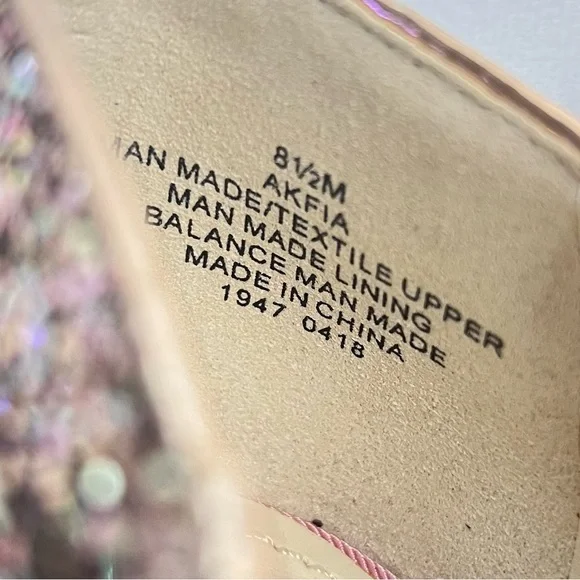 8½M
AKFIA
MAN MADE/TEXTILE UPPER
MAN MADE LINING
BALANCE MAN MADE
MADE IN CHINA
1947 0418